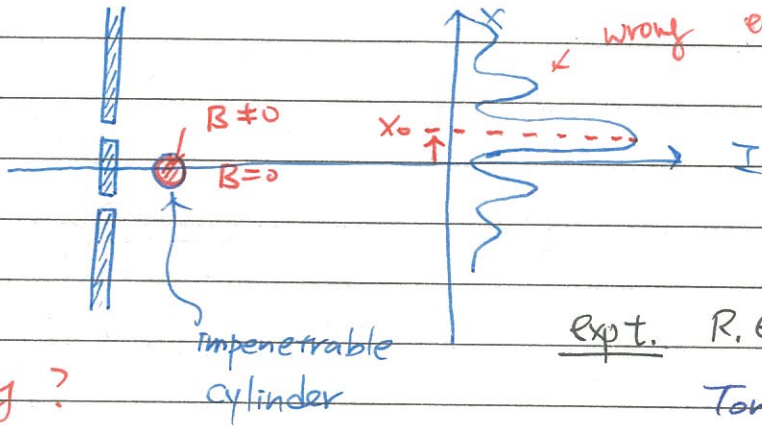 x
wrong
B ≠ 0
x₀
B = 0
I
impenetrable
cylinder
expt. R.
?